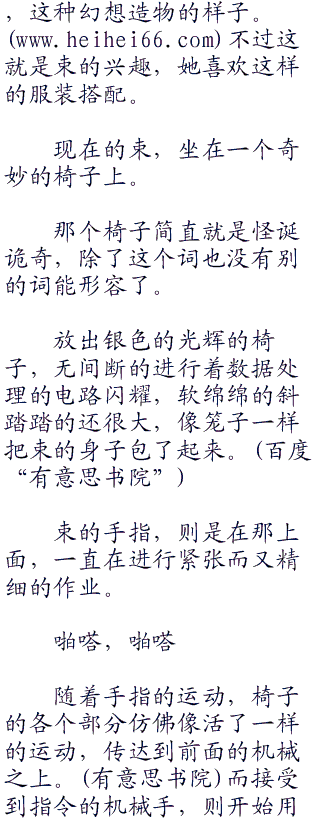 ，这种幻想造物的样子。
(www.heihei66.com)不过这
就是束的兴趣，她喜欢这样
的服装搭配。
现在的束，坐在一个奇
妙的椅子上。
那个椅子简直就是怪诞
诡奇，除了这个词也没有别
的词能形容了。
放出银色的光辉的椅
子，无间断的进行着数据处
理的电路闪耀，软绵绵的斜
踏踏的还很大，像笼子一样
把束的身子包了起来。(百度
“有意思书院”)
束的手指，则是在那上
面，一直在进行紧张而又精
细的作业。
啪嗒，啪嗒
随着手指的运动，椅子
的各个部分仿佛像活了一样
的运动，传达到前面的机械
之上。(有意思书院)而接受
到指令的机械手，则开始用